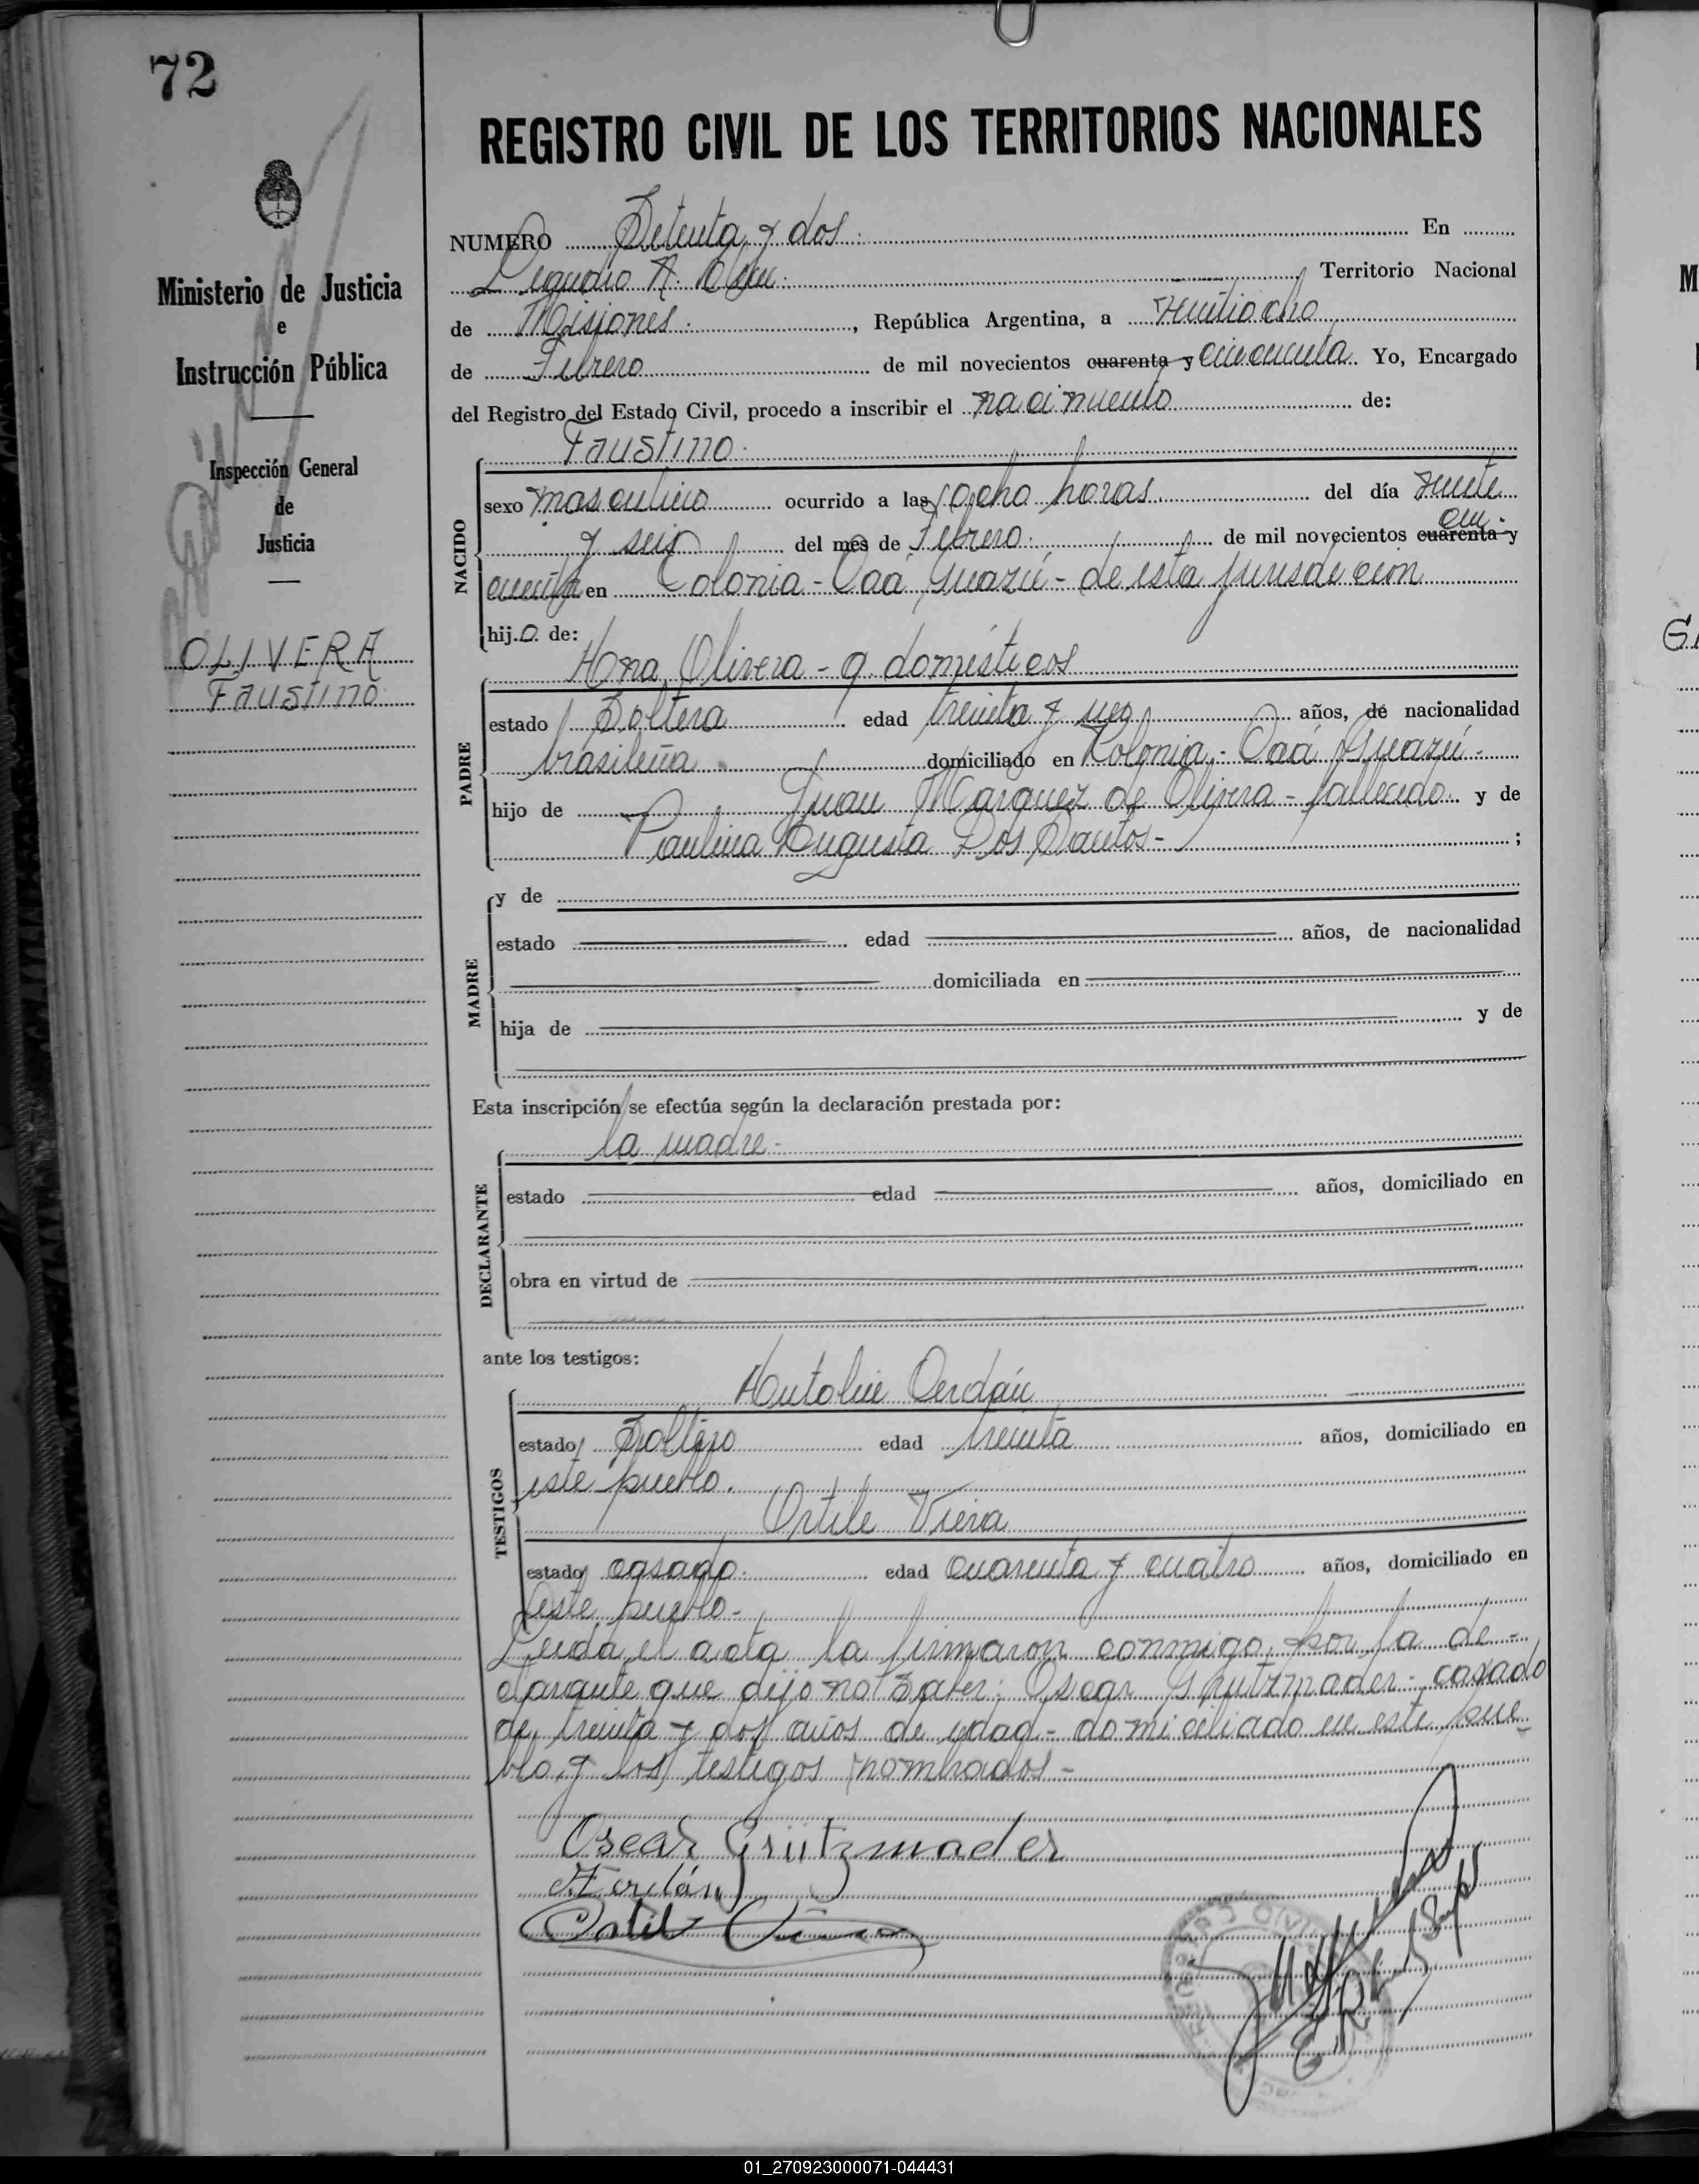 72
REGISTRO CIVIL DE LOS TERRITORIOS NACIONALES
Ministerio de Justicia
e
Instrucción Pública
Inspección General
de
Justicia
OLIVERA
Faustino
NUMERO Setenta y dos. En
Leandro N. Alem. Territorio Nacional
de Misiones. , República Argentina, a veintiocho
de Febrero de mil novecientos cuarenta y cincuenta Yo, Encargado
del Registro del Estado Civil, procedo a inscribir el nacimiento de:
Faustino.
NACIDO
sexo masculino ocurrido a las ocho horas del día veinte
y seis del mes de Febrero. de mil novecientos cuarenta y cin-
cuenta en Colonia - Caá Guazú - de esta jurisdiccion
hijo de:
Ana Olivera - q. domésticos
PADRE
estado Soltera edad treinta y uno años, de nacionalidad
brasileña domiciliado en Colonia - Caá Guazú -
hijo de Juan Marquez de Olivera - fallecido y de
Paulina Augusta Dos Santos - ;
MADRE
y de
estado edad años, de nacionalidad
domiciliada en
hija de y de
Esta inscripción se efectúa según la declaración prestada por:
la madre -
DECLARANTE
estado edad años, domiciliado en
obra en virtud de
ante los testigos:
TESTIGOS
Cerdán
estado Soltero edad treinta años, domiciliado en
este pueblo.
Ortile Viera
estado casado. edad cuarenta y cuatro años, domiciliado en
este pueblo -
Leida el acta la firmaron conmigo, por la de-
clarante que dijo no saber; Oscar casado
de treinta y dos años de edad - domiciliado en este pue-
blo, y los testigos nombrados -
Oscar Grützmader
Ortile Viera
01_270923000071-044431